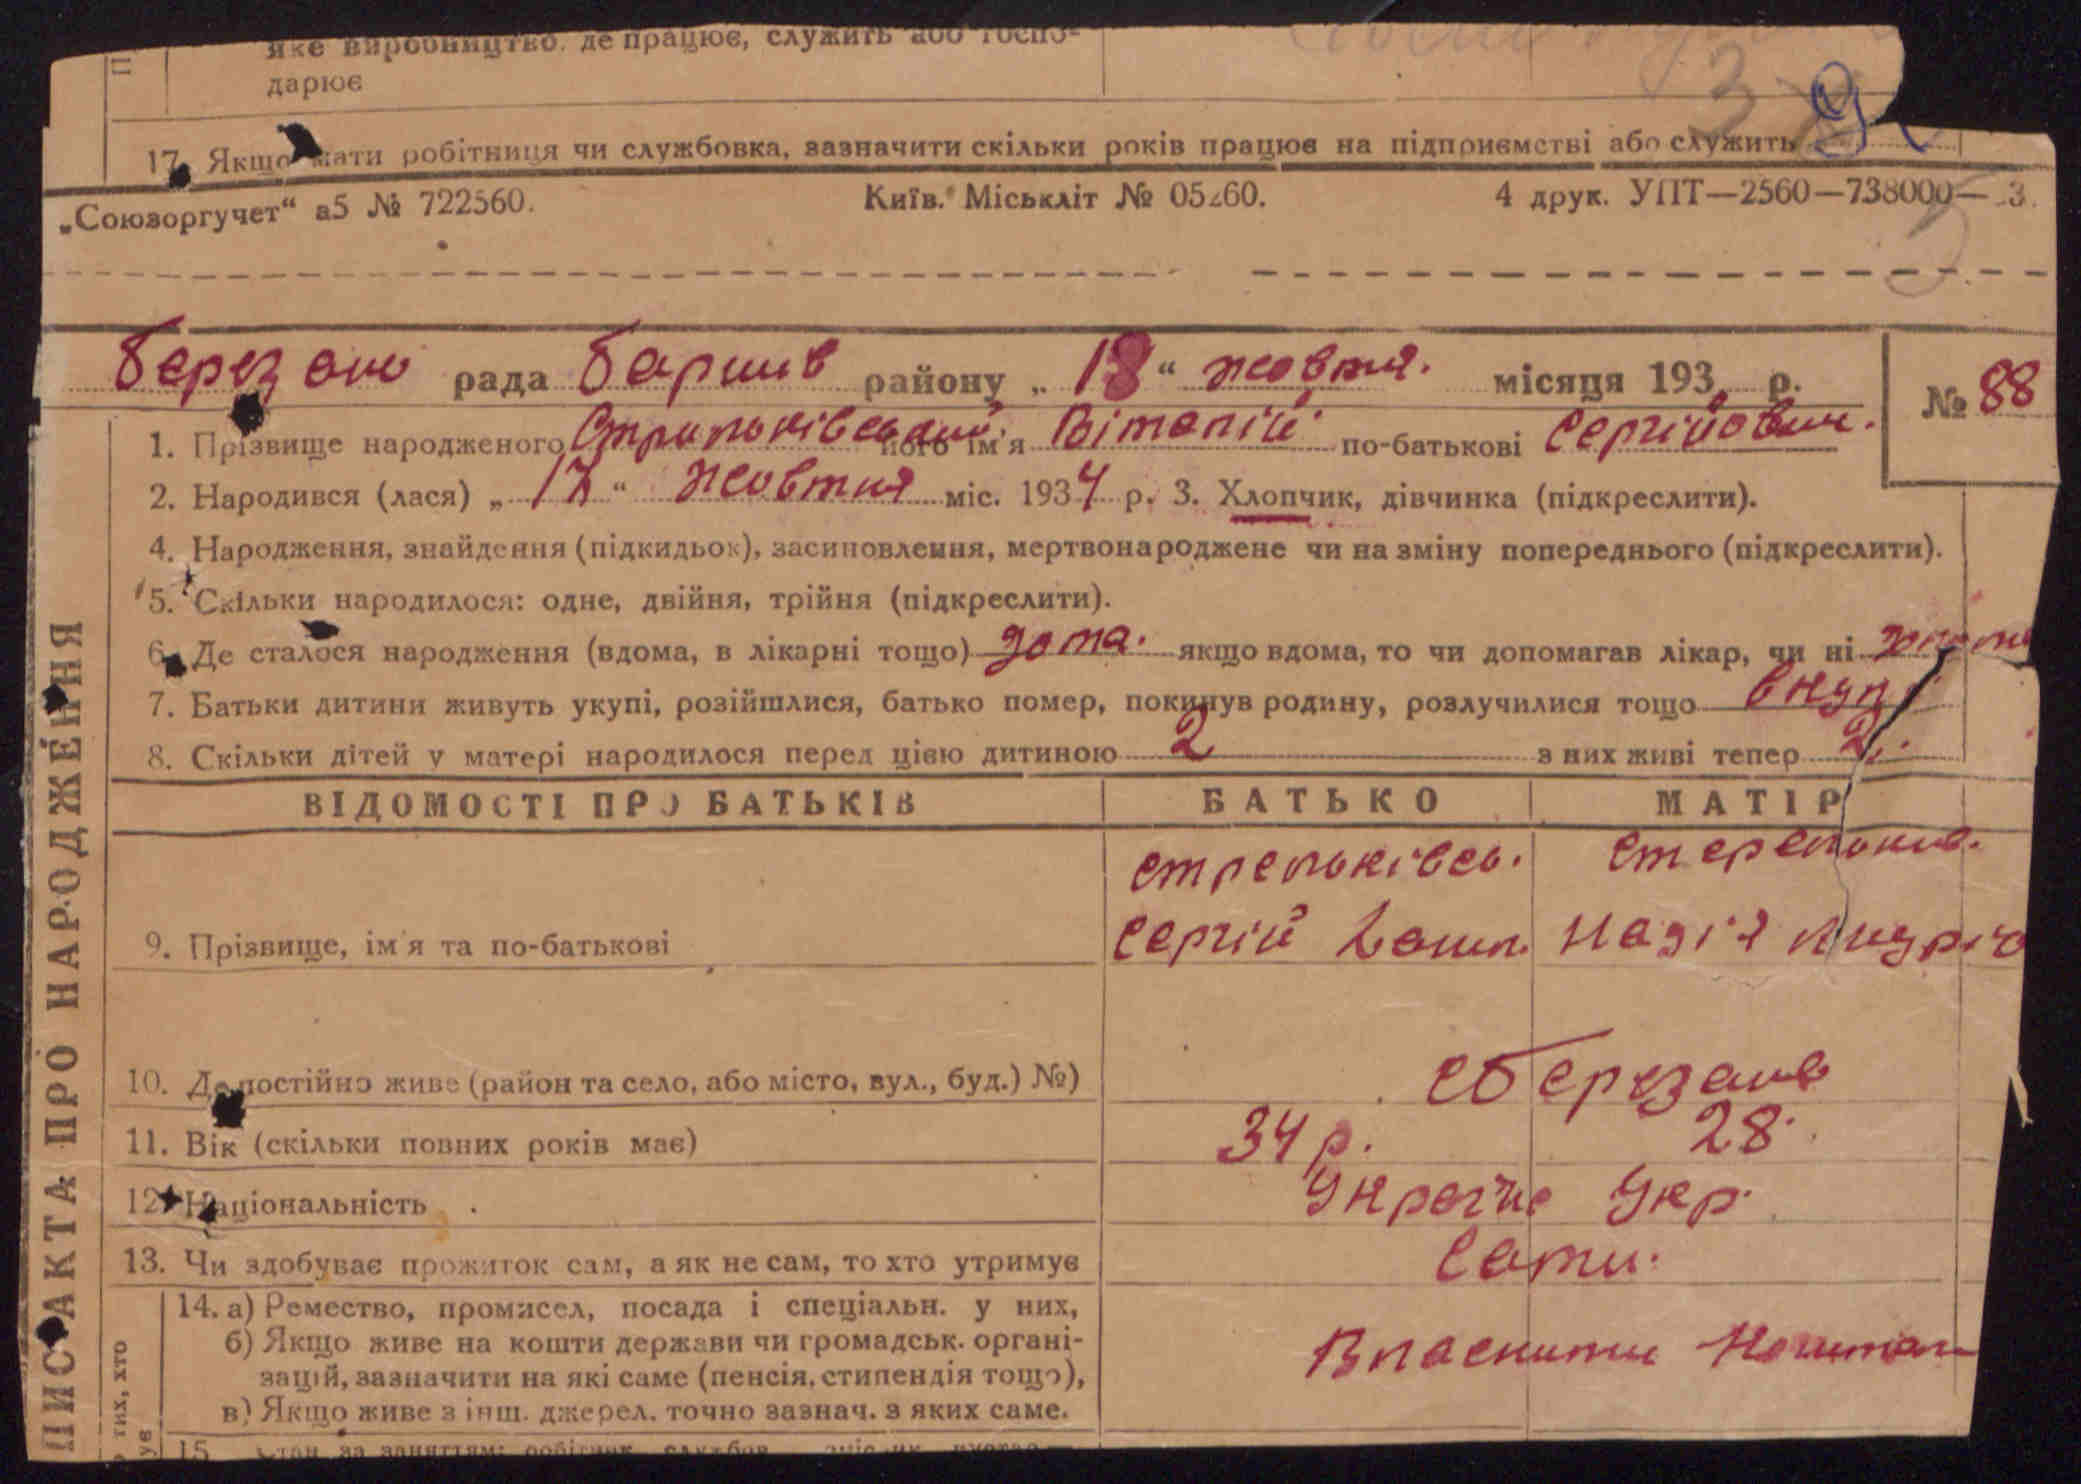 яке виробництво, де працює, служить або госпо-
дарює
17. Якщо мати робітниця чи службовка, зазначити скільки років працює на підприємстві або служить
„Союзоргучет“ а5 № 722560. Київ. Міськліт № 05260. 4 друк. УПТ—2560—738000—
рада район у „18“ жовтня. місяця 193 р.
№ 88
1. Прізвище народженого його ім'я Віталій по-батькові Сергійович.
2. Народився (лася) „17“ жовтня міс. 1934 р. 3. Хлопчик, дівчинка (підкреслити).
4. Народження, знайдення (підкидьок), засиновлення, мертвонароджене чи на зміну попереднього (підкреслити).
5. Скільки народилося: одне, двійня, трійня (підкреслити).
6. Де сталося народження (вдома, в лікарні тощо) дома. якщо вдома, то чи допомагав лікар, чи ні
7. Батьки дитини живуть укупі, розійшлися, батько помер, покинув родину, розлучилися тощо вкупі
8. Скільки дітей у матері народилося перед цією дитиною 2 з них живі тепер 2.
ВІДОМОСТІ ПРО БАТЬКІВ БАТЬКО МАТІР
9. Прізвище, ім'я та по-батькові Сергій Надія
10. Де постійно живе (район та село, або місто, вул., буд.) №)
11. Вік (скільки повних років має) 34 р. 28.
12. Національність Укр.
13. Чи здобуває прожиток сам, а як не сам, то хто утримує Сами.
14. а) Ремество, промисел, посада і спеціальн. у них,
б) Якщо живе на кошти держави чи громадськ. органі-
зацій, зазначити на які саме (пенсія, стипендія тощо),
в) Якщо живе з інш. джерел, точно зазнач. з яких саме.
15.
ПИС АКТА ПРО НАРОДЖЕННЯ
тих, хто